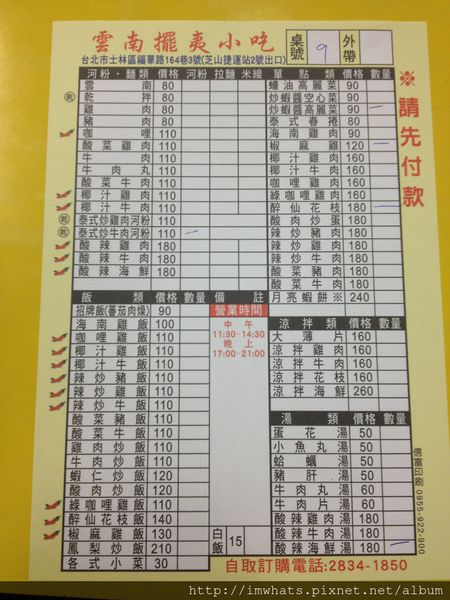 雲南擺夷小吃
台北市士林區福華路164巷3號(芝山捷運站2號出口)
桌號 9 外帶
河粉·麵類 價格 河粉 拉麵 米線
雲南 80
乾 乾拌 80
雞肉 80
豬肉 80
咖哩 110
酸菜雞肉 110
牛肉 110
牛肉丸 110
酸菜牛肉 110
椰汁雞肉 110
椰汁牛肉 110
乾 泰式炒雞肉河粉 110
乾 泰式炒牛肉河粉 110
酸辣雞肉 180
酸辣牛肉 180
酸辣海鮮 180
單點類 價格 數量
蠔油高麗菜 90
炒蝦醬空心菜 90
炒蝦醬高麗菜 90
泰式春捲 80
海南雞肉 90
椒麻雞 120
椰汁雞肉 160
椰汁牛肉 160
咖哩雞肉 160
綠咖哩雞肉 160
醉仙花枝 180
酸肉炒蛋 180
辣炒豬肉 180
辣炒牛肉 180
酸菜豬肉 180
酸菜牛肉 180
月亮蝦餅※ 240
※請先付款
飯類 價格 數量 備註
招牌飯(蕃茄肉燥) 90
海南雞飯 100
咖哩雞飯 110
椰汁雞飯 110
椰汁牛飯 110
辣炒豬飯 110
辣炒雞飯 110
辣炒牛飯 110
酸菜豬飯 110
酸菜牛飯 110
雞肉炒飯 110
牛肉炒飯 110
蝦仁炒飯 120
酸肉炒飯 120
綠咖哩雞飯 110
醉仙花枝飯 140
椒麻雞飯 130
鳳梨炒飯 210
各式小菜 30
營業時間
中午
11:30-14:30
晚上
17:00-21:00
白飯 15
涼拌類 價格 數量
大薄片 160
涼拌雞肉 160
涼拌牛肉 160
涼拌花枝 160
涼拌海鮮 260
湯類 價格 數量
蛋花湯 50
小魚丸湯 50
蛤蠣湯 50
豬肝湯 50
牛肉丸湯 60
牛肉片湯 60
酸辣雞肉湯 180
酸辣海鮮湯 180
自取訂購電話:2834-1850
信富印刷 0955-922-900
http://imwhats.pixnet.net/album